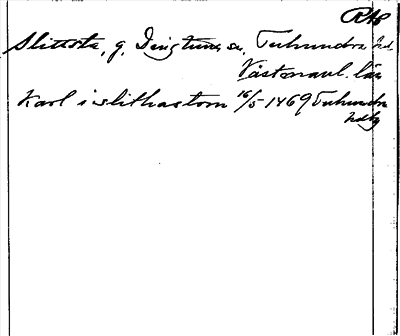 RAp
Slittsta, g. Dingtuna sn, Tuhundra hd
Västmanl. län
Karl i slithastom 16/5 1469 Tuhundra
hdtg